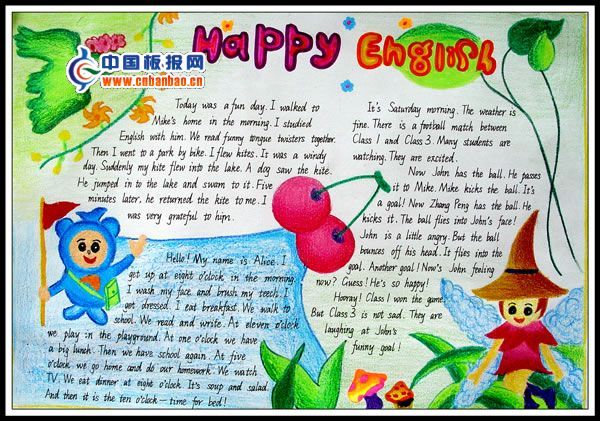 Happy English
中国板报网
www.cnbanbao.cn
Today was a fun day. I walked to
Mike's home in the morning. I studied
English with him. We read funny tongue twisters together.
Then I went to a park by bike. I flew kites. It was a windy
day. Suddenly my kite flew into the lake. A dog saw the kite.
He jumped in to the lake and swam to it. Five
minutes later, he returned the kite to me. I
was very grateful to him.
Hello! My name is Alice. I
get up at eight o'clock in the morning.
I wash my face and brush my teeth. I
get dressed. I eat breakfast. We walk to
school. We read and write. At eleven o'clock
we play in the playground. At one o'clock we have
a big lunch. Then we have school again. At five
o'clock we go home and do our homework. We watch
TV. We eat dinner at eight o'clock. It's soup and salad.
And then it is the ten o'clock — time for bed!
It's Saturday morning. The weather is
fine. There is a football match between
Class 1 and Class 3. Many students are
watching. They are excited.
Now John has the ball. He passes
it to Mike. Mike kicks the ball. It's
a goal! Now Zhang Peng has the ball. He
kicks it. The ball flies into John's face!
John is a little angry. But the ball
bounces off his head. It flies into the
goal. Another goal! Now's John feeling
now? Guess! He's so happy!
Hooray! Class 1 won the game
But Class 3 is not sad. They are
laughing at John's
funny goal!